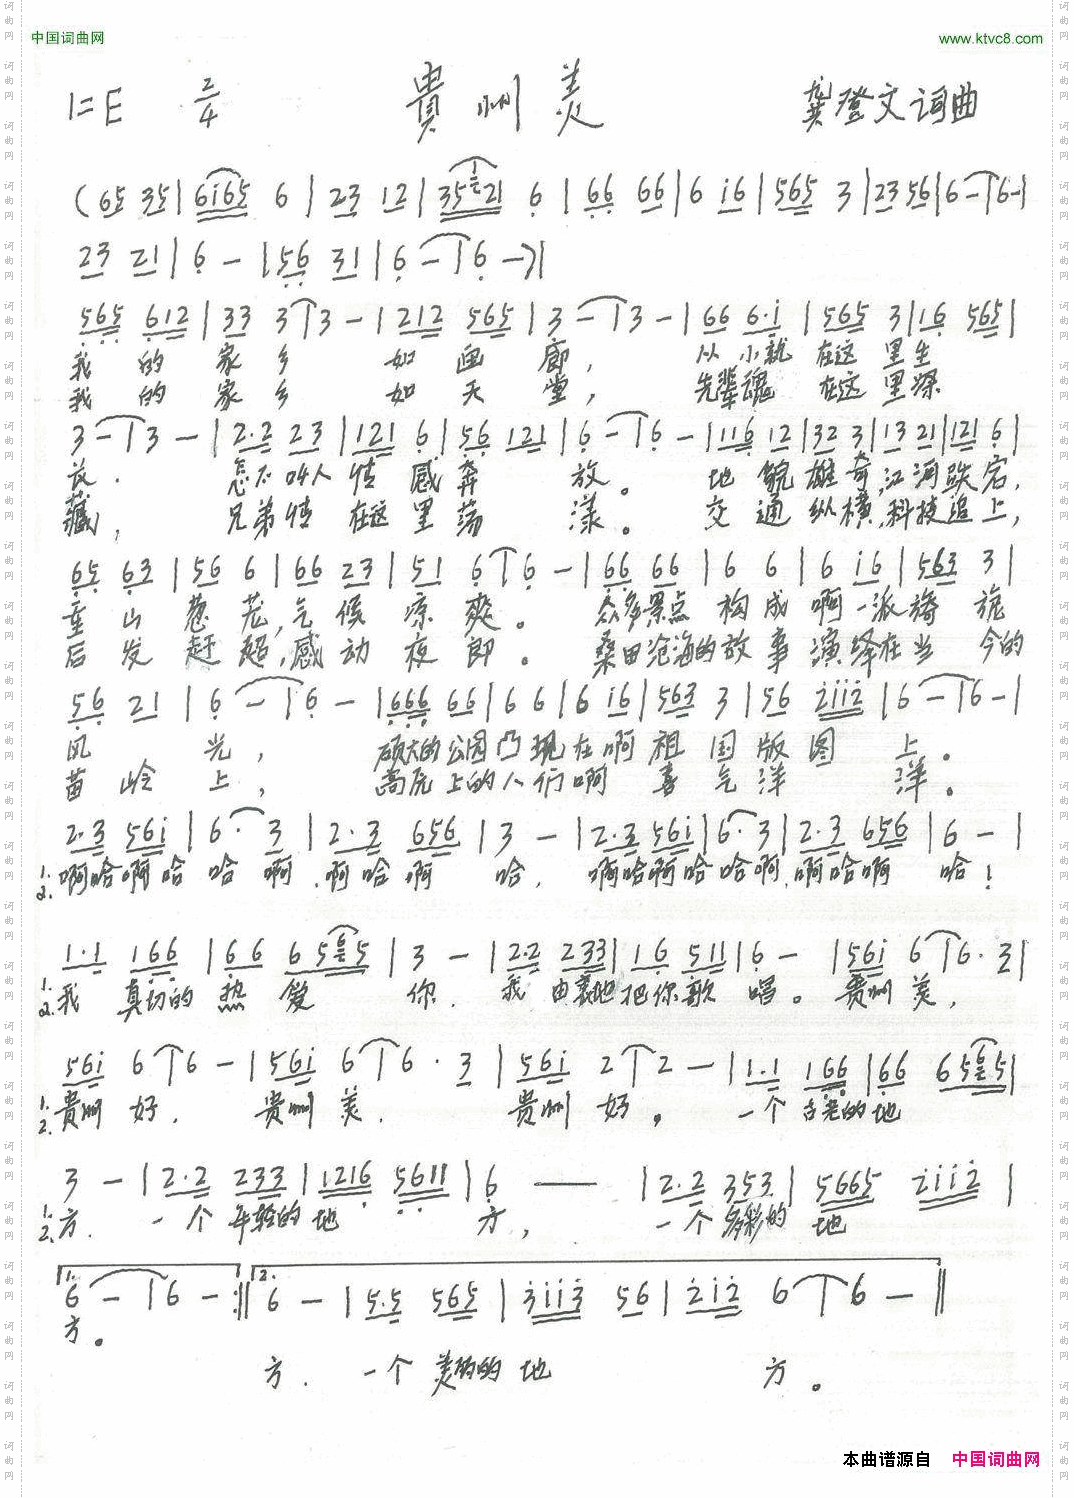 中国词曲网 www.ktvc8.com
1=E 2/4 貴州美 龚登文词曲
(65 35|6i65 6|23 12|35121 6|66 66|6 i6|565 3|23 56|6-|6-|
23 21|6-|56 31|6-|6-)|
565 612|33 3|3-|212 565|3-|3-|66 6·i|565 3|16 565|
我的家乡 如画廊, 从小就在这里生
我的家乡 如天堂, 先辈魂在这里深
3-|3-|2·2 23|121 6|56 121|6-|6-|116 12|32 3|13 21|121 6|
放. 怎不叫人情感奔放。地貌雄奇,江河跌宕,
藏, 兄弟情在这里荡漾。交通纵横,科技追上,
65 63|56 6|66 23|51 6|6-|66 66|6 6|6 i6|563 3|
重山葱茏,气候凉爽。众多景点构成啊一派旖旎
后发赶超,感动夜郎。桑田沧海的故事演绎在当今的
56 21|6-|6-|666 66|6 6|6 i6|563 3|56 iiii|6-|6-|
风光, 硕大的公园凸现在啊祖国版图上。
苗岭上, 高原上的人们啊喜气洋洋。
2·3 56i|6· 3|2·3 656|3-|2·3 56i|6· 3|2·3 656|6-|
1.2.啊哈啊哈哈啊.啊哈啊哈. 啊哈啊哈哈啊.啊哈啊哈!
1·1 166|66 6565|3-|2·2 233|16 511|6-|56i 6|6·3|
1.2.我真切的热爱你. 我由衷地把你歌唱。贵州美,
56i 6|6-|56i 6|6·3|56i 2|2-|1·1 166|66 6565|
1.2.贵州好. 贵州美. 贵州好。一个古老的地
3-|2·2 233|1216 5611|6 —|2·2 353|5665 iiii|
1.2.方. 一个年轻的地方, 一个多彩的地
1. 6-|6-:‖2. 6-|5·5 565|3ii3 56|2i2 6|6-‖
方。
方. 一个美丽的地方。
本曲谱源自 中国词曲网